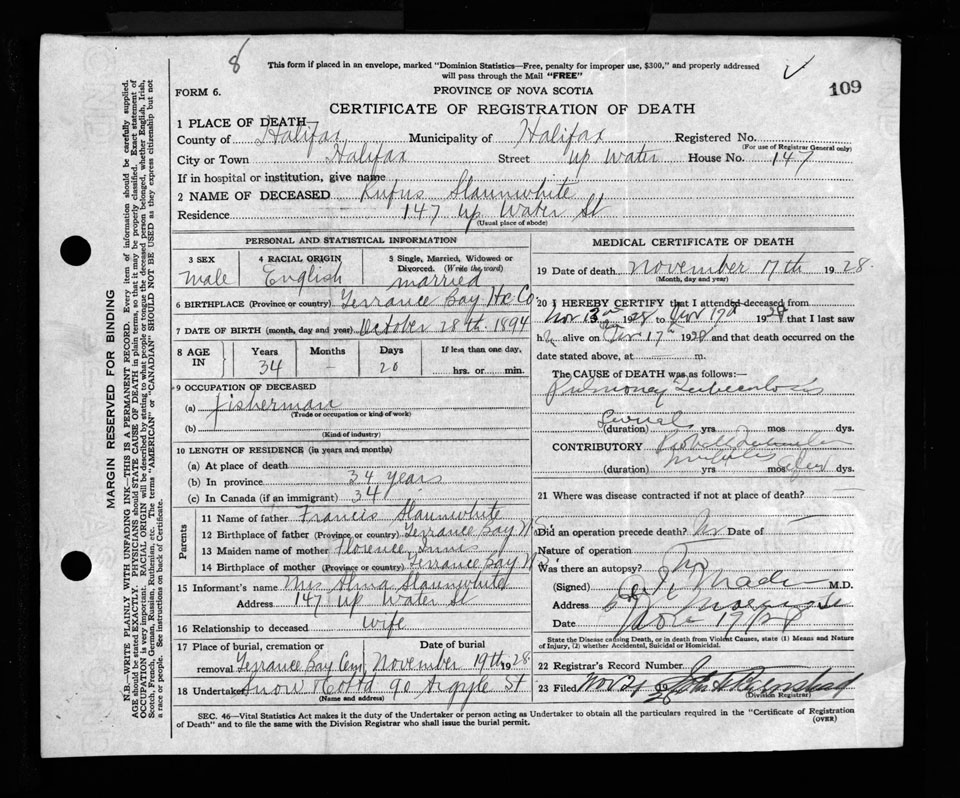 8
This form if placed in an envelope, marked "Dominion Statistics—Free, penalty for improper use, $300," and properly addressed
will pass through the Mail "FREE"
109
FORM 6.
PROVINCE OF NOVA SCOTIA
CERTIFICATE OF REGISTRATION OF DEATH
1 PLACE OF DEATH
County of Halifax Municipality of Halifax Registered No.
(For use of Registrar General only)
City or Town Halifax Street up Water House No. 147
If in hospital or institution, give name
2 NAME OF DECEASED Rufus Slaunwhite
Residence 147 up Water St
(Usual place of abode)
PERSONAL AND STATISTICAL INFORMATION
3 SEX 4 RACIAL ORIGIN 5 Single, Married, Widowed or
Divorced. (Write the word)
male English married
6 BIRTHPLACE (Province or country) Terrance Bay Hx. Co
7 DATE OF BIRTH (month, day and year) October 28th. 1894
8 AGE IN Years Months Days If less than one day,
34 - 20 hrs. or min.
9 OCCUPATION OF DECEASED
(a) fisherman
(Trade or occupation or kind of work)
(b)
(Kind of industry)
10 LENGTH OF RESIDENCE (in years and months)
(a) At place of death
(b) In province 34 years
(c) In Canada (if an immigrant) 34
Parents
11 Name of father Francis Slaunwhite
12 Birthplace of father (Province or country) Terrance Bay N.S.
13 Maiden name of mother Florence
14 Birthplace of mother (Province or country) Terrance Bay N.S.
15 Informant's name Mrs Alma Slaunwhite
Address 147 up Water St
16 Relationship to deceased wife
17 Place of burial, cremation or Date of burial
removal Terrance Bay Cem November 19th. 28
18 Undertaker Snow & Co Ltd 90 Argyle St
(Name and address)
MEDICAL CERTIFICATE OF DEATH
19 Date of death November 17th 1928.
(Month, day and year)
20 I HEREBY CERTIFY that I attended deceased from
Nov 1928 to Nov 17 1928 that I last saw
h alive on Nov 17th 1928 and that death occurred on the
date stated above, at m.
The CAUSE OF DEATH was as follows:—
Pulmonary Tuberculosis
Several
(duration) yrs mos dys.
CONTRIBUTORY
(duration) yrs mos dys.
21 Where was disease contracted if not at place of death?
Did an operation precede death? No Date of
Nature of operation
Was there an autopsy? No
(Signed) Mader M.D.
Address 67 Morris St
Date Nov 19/28
State the Disease causing Death, or in death from Violent Causes, state (1) Means and Nature
of Injury, (2) whether Accidental, Suicidal or Homicidal.
22 Registrar's Record Number
23 Filed Nov 20 28 John A
(Division Registrar)
SEC. 46—Vital Statistics Act makes it the duty of the Undertaker or person acting as Undertaker to obtain all the particulars required in the "Certificate of Registration
of Death" and to file the same with the Division Registrar who shall issue the burial permit.
(OVER)
MARGIN RESERVED FOR BINDING
N.B.—WRITE PLAINLY WITH UNFADING INK—THIS IS A PERMANENT RECORD. Every item of information should be carefully supplied.
AGE should be stated EXACTLY. PHYSICIANS should STATE CAUSE OF DEATH in plain terms, so that it may be properly classified. Exact statement of
OCCUPATION is very important. RACIAL ORIGIN will be described by stating to what people or tongue the deceased person belonged, whether English, Irish,
Scotch, French, German, Russian, Ruthenian, etc. The terms "AMERICAN" or "CANADIAN" SHOULD NOT BE USED as they express citizenship but not
a race or people. See instructions on back of Certificate.